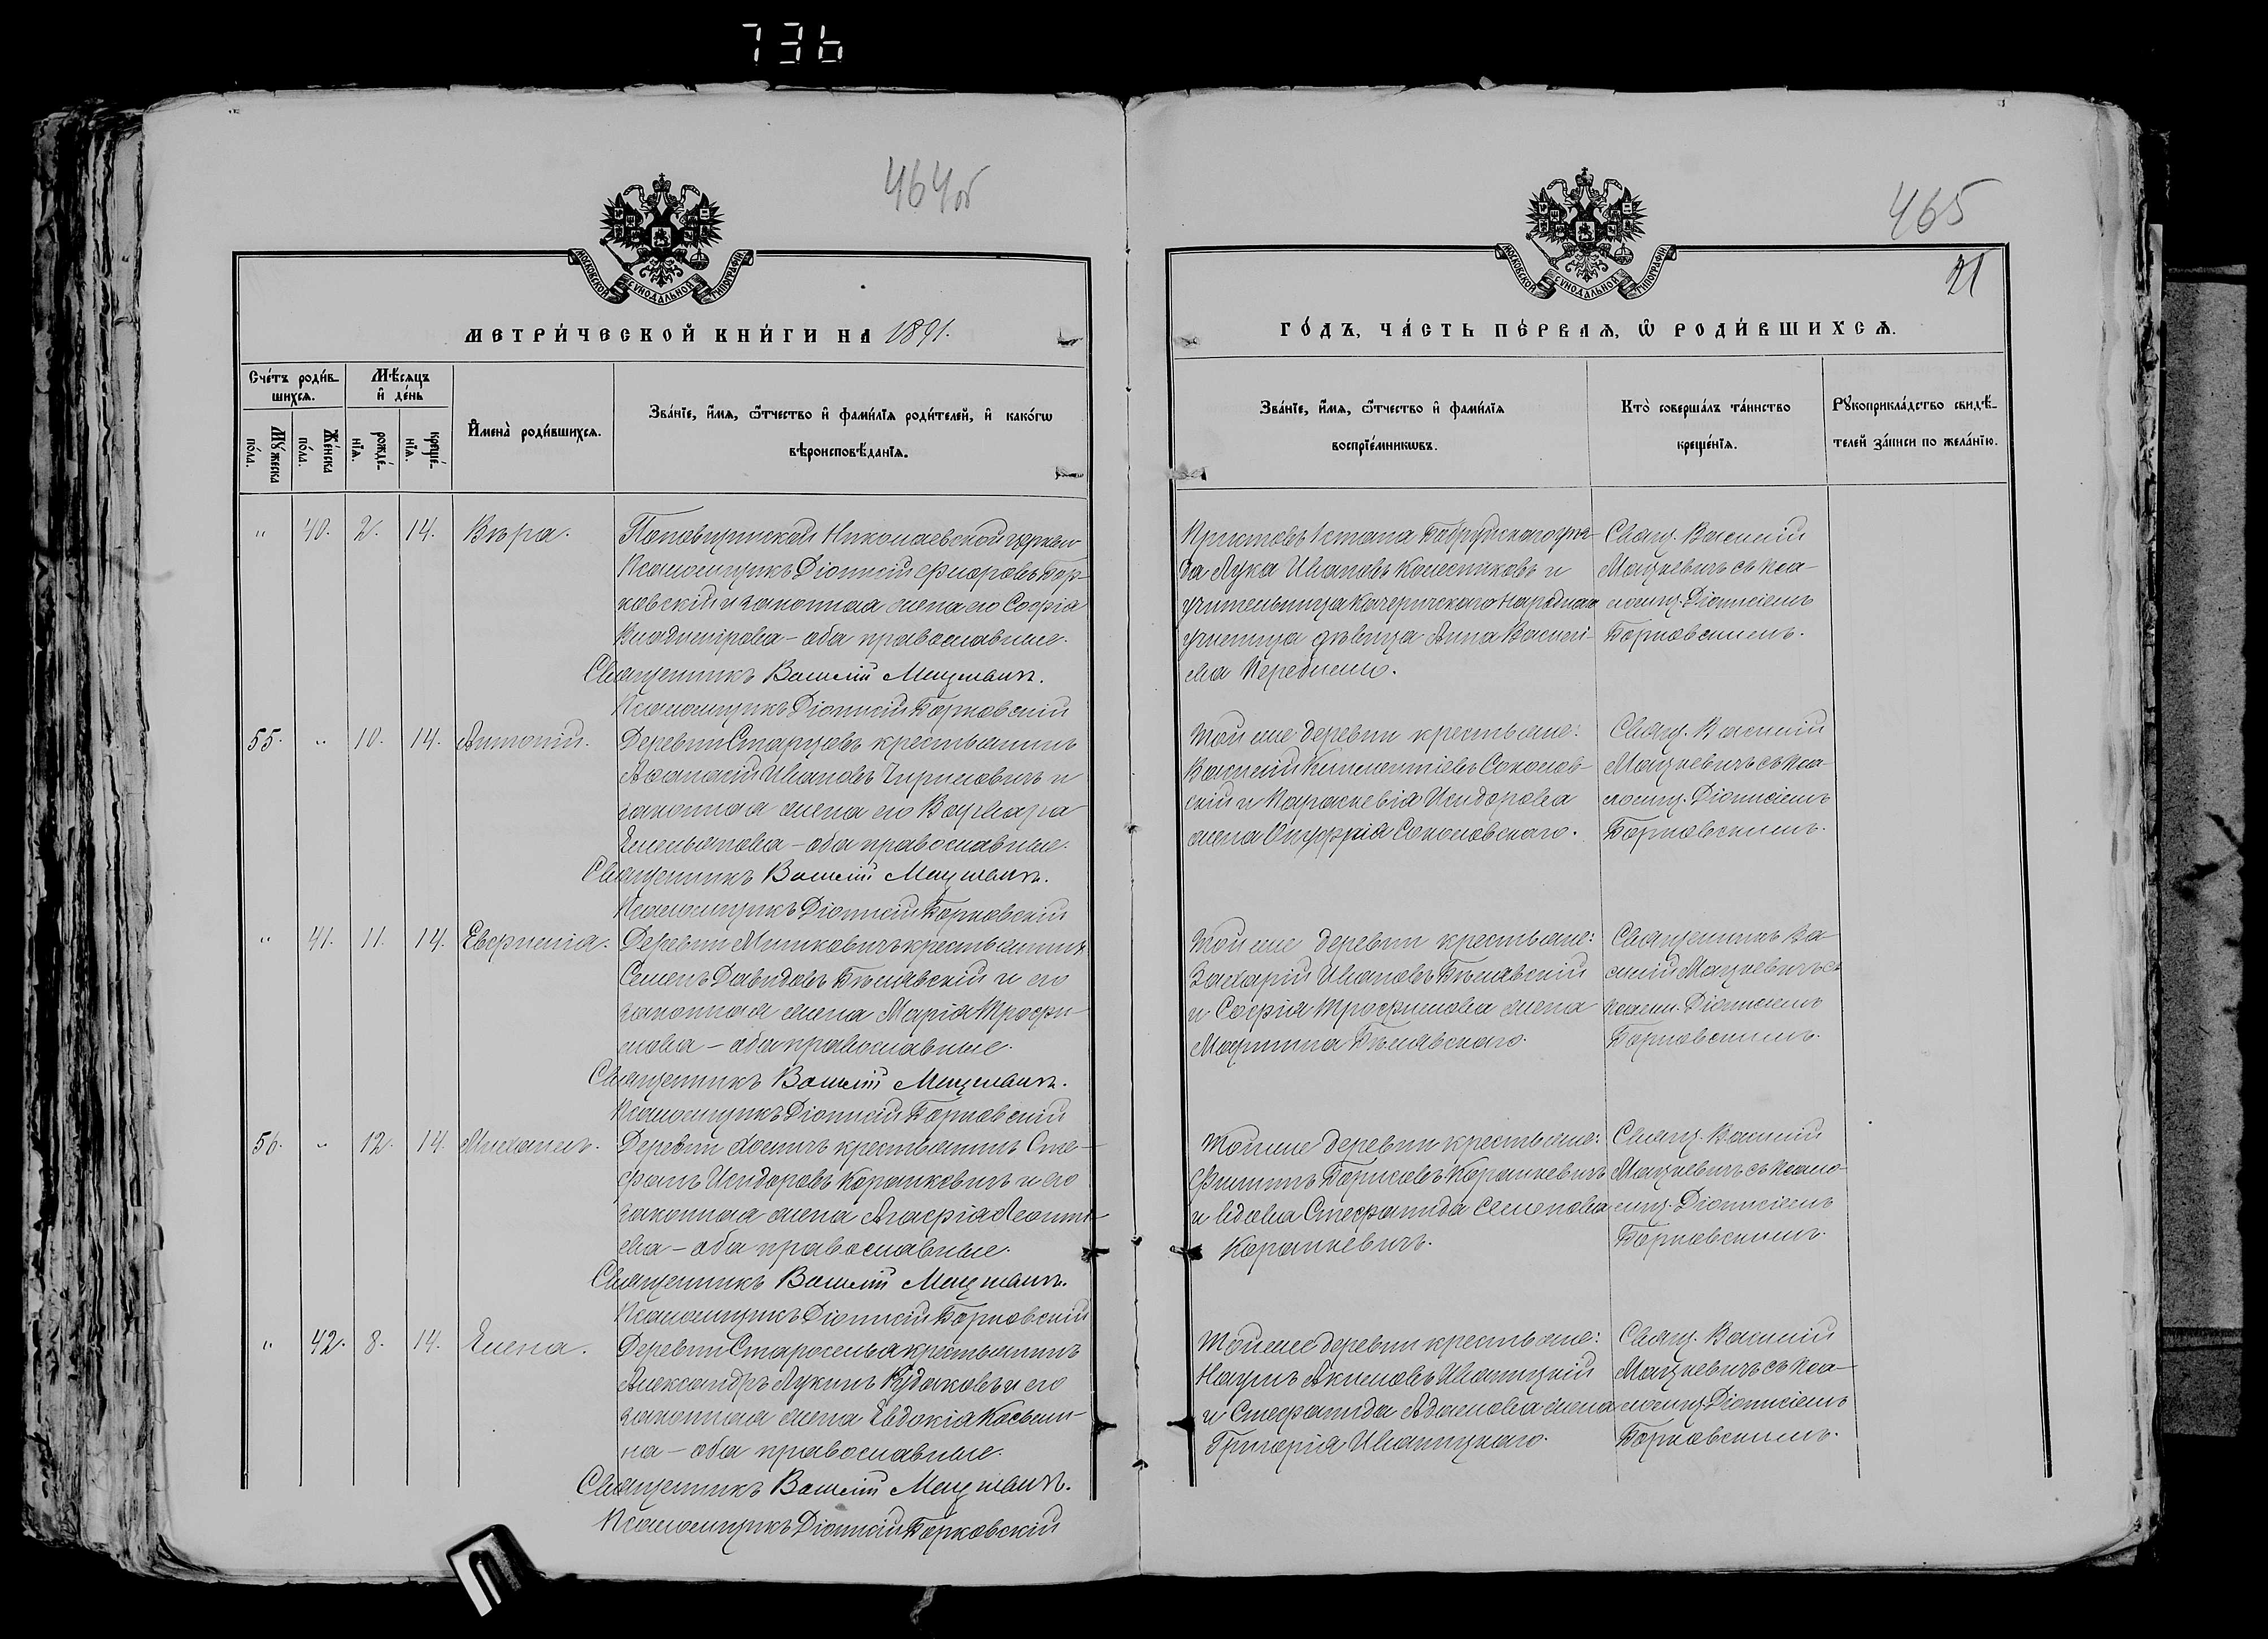 736
464об
МОСКОВСКОЙ СѴНОДАЛЬНОЙ ТИПОГРАФІИ
МЕТРИ́ЧЕСКОЙ КНИ́ГИ НА 1891.
Сче́тъ роди́вшихсѧ.
Мѣ́сѧцъ и҆ де́нь
И҆мена̀ роди́вшихсѧ.
Зва́нїе, и҆́мѧ, ѻ҆́тчество и҆ фами́лїѧ роди́телей, и҆ како́гѡ
вѣроисповѣ́данїѧ.
Мꙋ́жеска по́ла.
Же́нска по́ла.
рожде́нїѧ.
креще́нїѧ.
" 40. 2. 14. Вѣра.
Поповщинской Николаевской церкви
Псаломщикъ Діонисій Флоровъ Бор-
ковскій и законная жена его Софія
Владимірова – оба православные.
Священникъ Василій Мацкевичъ.
Псаломщикъ Діонисій Борковскій
55. " 10. 14. Антоній.
Деревни Старцовъ крестьянинъ
Аѳанасій Ивановъ Чириковичъ и
законная жена его Варвара
Емельянова – оба православные.
Священникъ Василій Мацкевичъ.
Псаломщикъ Діонисій Борковскій
" 41. 11. 14. Евфимія.
Деревни крестьянинъ
Семенъ Давидовъ Бѣлявскій и его
законная жена Марія Трофи-
мова – оба православные.
Священникъ Василій Мацкевичъ.
Псаломщикъ Діонисій Борковскій
56. " 12. 14. Михаилъ.
Деревни крестьянинъ Сте-
фанъ Исидоровъ Коранкевичъ и его
законная жена Агафія Леонть-
ева – оба православные.
Священникъ Василій Мацкевичъ.
Псаломщикъ Діонисій Борковскій
" 42. 8. 14. Елена.
Деревни Староселья крестьянинъ
Александръ Лукинъ Кудаковъ и его
законная жена Евдокія Косьми-
на – оба православные.
Священникъ Василій Мацкевичъ.
Псаломщикъ Діонисій Борковскій
465
21
МОСКОВСКОЙ СѴНОДАЛЬНОЙ ТИПОГРАФІИ
ГО́ДЪ, ЧА́СТЬ ПЕ́РВАѦ, Ѡ҆ РОДИ́ВШИХСѦ.
Зва́нїе, и҆́мѧ, ѻ҆́тчество и҆ фами́лїѧ
воспрїе́мникѡвъ.
Кто̀ соверша́лъ та́инство
креще́нїѧ.
Рꙋкоприкла́дство свидѣ́-
телей за́писи по жела́нїю.
Приставъ 1 стана Бобруйскаго уѣз-
да Лука Ивановъ Колесниковъ и
учительница Качеричскаго народнаго
училища дѣвица Анна Василь-
ева
Свящ. Василій
Мацкевичъ съ пса-
ломщ. Діонисіемъ
Борковскимъ.
Той же деревни крестьяне:
Василій Климентіевъ Соколов-
скій и Параскевія Исидорова
жена Онуфрія Соколовскаго.
Свящ. Василій
Мацкевичъ съ пса-
ломщ. Діонисіемъ
Борковскимъ.
Той же деревни крестьяне:
Захарій Ивановъ Бѣлявскій
и Софія Трофимова жена
Мартина Бѣлявскаго.
Священникъ Ва-
силій Мацкевичъ съ
псалом. Діонисіемъ
Борковскимъ.
Той же деревни крестьяне:
Филиппъ Борисовъ Коранкевичъ
и вдова Стефанида Семенова
Коранкевичъ.
Свящ. Василій
Мацкевичъ съ псало-
мщ. Діонисіемъ
Борковскимъ.
Той же деревни крестьяне:
Наумъ Акимовъ Иваницкій
и Стефанида Адамова жена
Григорія Иваницкаго.
Свящ. Василій
Мацкевичъ съ пса-
ломщ. Діонисіемъ
Борковскимъ.